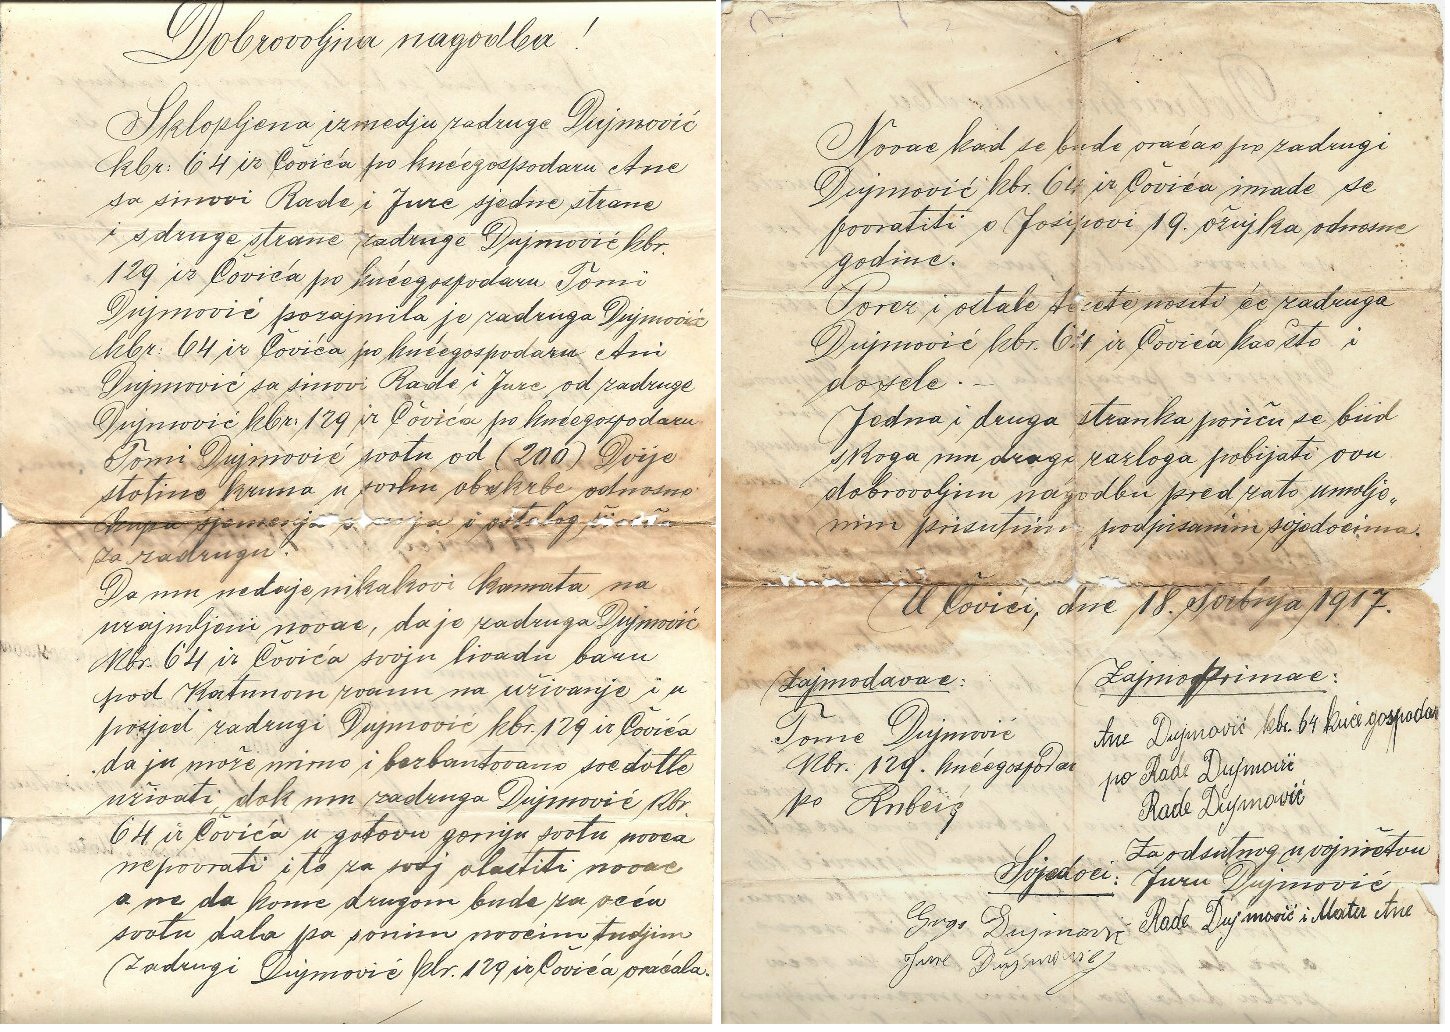 Dobrovoljna nagodba!
Sklopljena izmedju zadruge Dujmović
kbr: 64 iz Čovića po kućegospodaru Ane
sa sinovi Rade i Jure sjedne strane
i sdruge strane zadruge Dujmović kbr.
129 iz Čovića po kućegospodaru Tomi
Dujmović pozajmila je zadruga Dujmović
kbr: 64 iz Čovića po kućegospodaru Ani
Dujmović sa sinovi Rade i Jure, od zadruge
Dujmović kbr: 129 iz Čovića po kućegospodaru
Tomi Dujmović svotu od (200) Dvije
stotine kruna u svrhu obskrbe odnosno
kupa sjemenja i ostalog
za zadrugu.
Da mu nedaje nikakovi kamata na
uzajmljeni novac, daje zadruga Dujmović
kbr. 64 iz Čovića svoju livadu baru
pod Katunom zvanu na uživanje i u
posjed zadrugi Dujmović kbr. 129 iz Čovića
da ju može mirno i bezbantovano sve dotle
uživati, dok mu zadruga Dujmović kbr.
64 iz Čovića u gotovu gornju svotu novca
nepovrati i to za svoj vlastiti novac
a ne da kome drugom bude za veću
svotu dala pa s onim novcim tudjim
zadrugi Dujmović kbr. 129 iz Čovića vraćala.
Novac kad se bude vraćao po zadrugi
Dujmović kbr. 64 iz Čovića imade se
povratiti o Josipovi 19. ožujka odnosne
godine.
Porez i ostale terete nositi će zadruga
Dujmović kbr. 64 iz Čovića kao što i
dosele. —
Jedna i druga stranka poriču se bud
skoga mu drago razloga pobijati ovu
dobrovoljnu nagodbu pred zato umolje„
nim prisutnim podpisanim svjedocima.
U Čovići, dne 18. Svibnja 1917.
Zajmodavac:
Tome Dujmović
kbr. 129. kućegospodar
po
Zajmoprimac:
Ane Dujmović kbr. 64 kuće gospodar
po Rade Dujmović
Rade Dujmović
Za odsutnog u vojništvu
Juru Dujmović
Rade Dujmović i Mater Ane
Svjedoci:
Dujmović
Jure Dujmović